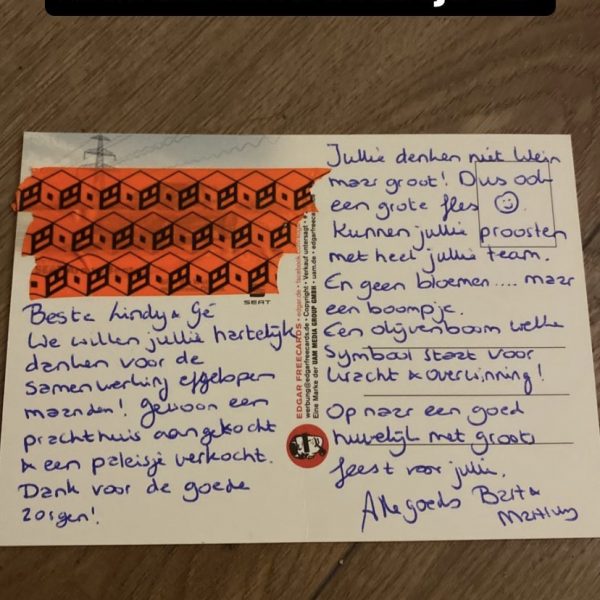 Beste Lindy & Gé
We willen jullie hartelijk
danken voor de
samenwerking afgelopen
maanden! Gewoon een
prachthuis aangekocht
& een paleisje verkocht.
Dank voor de goede
zorgen!
SEAT
EDGAR FREECARDS • edgar.de • facebook.com
werbung@edgarfreecards.de • Copyright • Verkauf untersagt
Eine Marke der UAM MEDIA GROUP GMBH • uam.de • edgarfreecards
Jullie denken niet klein
maar groot! Dus ook
een grote fles ☺
Kunnen jullie proosten
met heel jullie team.
En geen bloemen.... maar
een boompje.
Een olijvenboom welke
symbool staat voor
kracht & overwinning!
Op naar een goed
huwelijk met groots
feest voor jullie.
Alle goeds Bart &